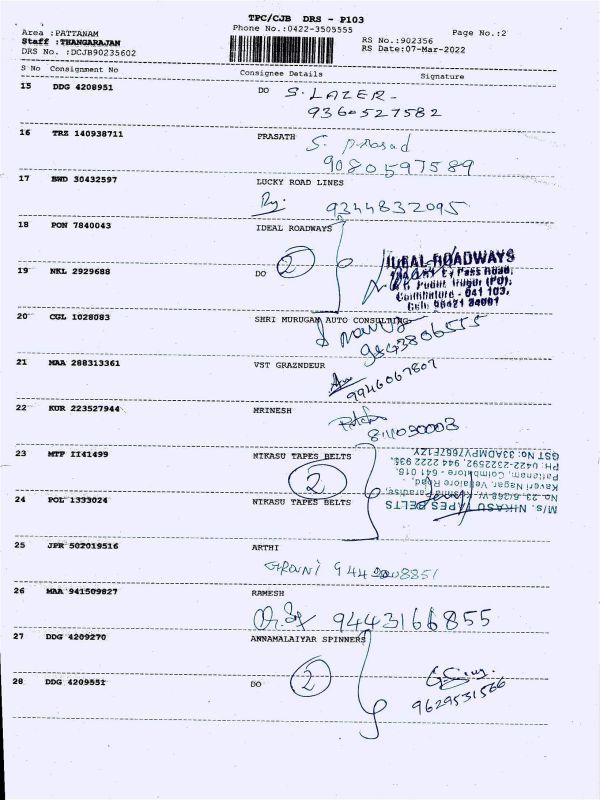 TPC/CJB DRS - P103
Phone No.:0422-3505555
Area :PATTANAM
Staff :THANGARAJAN
DRS No. :DCJB90235602
RS No.:902356
RS Date:07-Mar-2022
Page No.:2
S No Consignment No Consignee Details Signature
15 DDG 4208951 DO S. LAZER-
9360527582
16 TRZ 140938711 PRASATH S. prasad
9080597589
17 BWD 30432597 LUCKY ROAD LINES
9344832095
18 PON 7840043 IDEAL ROADWAYS
2
IDEAL ROADWAYS
19 NKL 2929688 DO
Coimbatore - 641 103.
20 CGL 1028083 SHRI MURUGAN AUTO CONSULTING
21 MAA 288313361 VST GRAZNDEUR
9946067807
22 KUR 223527944 MRINESH
23 MTP II41499 NIKASU TAPES BELTS
2
24 POL 1333024 NIKASU TAPES BELTS
M/s. NIKASU TAPES BELTS
No. 23, 6/268 W, Krishna Paradise,
Kaveri Nagar, Vellalore Road,
Pattanam, Coimbatore - 641 016.
PH: 0422-2322592, 944 2222 936.
GST NO: 33ADMPV7667F1ZY
25 JPR 502019516 ARTHI
26 MAA 941509827 RAMESH
9443166855
27 DDG 4209270 ANNAMALAIYAR SPINNERS
2
28 DDG 4209551 DO
9629531566